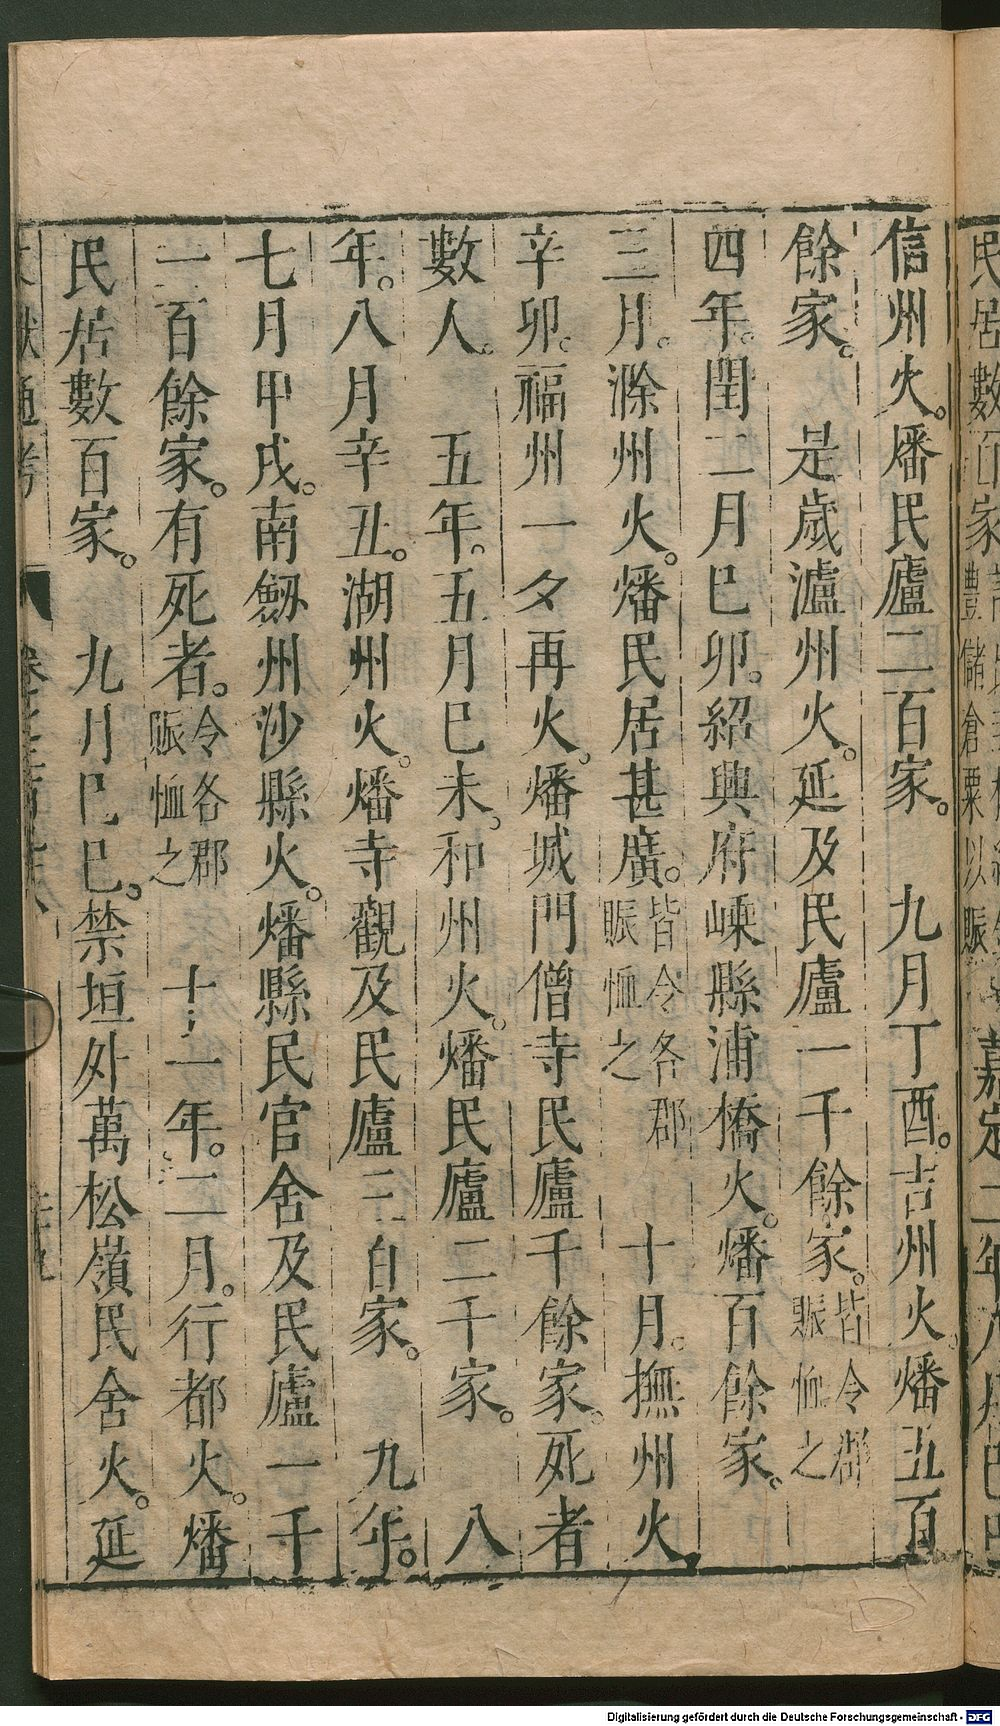 信州火。燔民廬二百家。　九月丁酉。吉州火。燔五百
餘家。　是歲瀘州火。延及民廬一千餘家。皆令郡賑恤之
四年。閏二月己卯。紹興府嵊縣浦橋火。燔百餘家。
三月。滁州火。燔民居甚廣。皆令各郡賑恤之　十月。撫州火
辛卯。福州一夕再火。燔城門僧寺民廬千餘家。死者
數人。　五年。五月己未。和州火。燔民廬二千家。　八
年。八月辛丑。湖州火。燔寺觀及民廬三百家。　九年。
七月甲戌。南劒州沙縣火。燔縣民官舍及民廬一千
一百餘家。有死者。令各郡賑恤之　十一年。二月。行都火。燔
民居數百家。　九月己巳。禁垣外萬松嶺民舍火。延
文獻通考
民居數百家
豐儲倉粟以賑
嘉定二年八月己巳
Digitalisierung gefördert durch die Deutsche Forschungsgemeinschaft - DFG